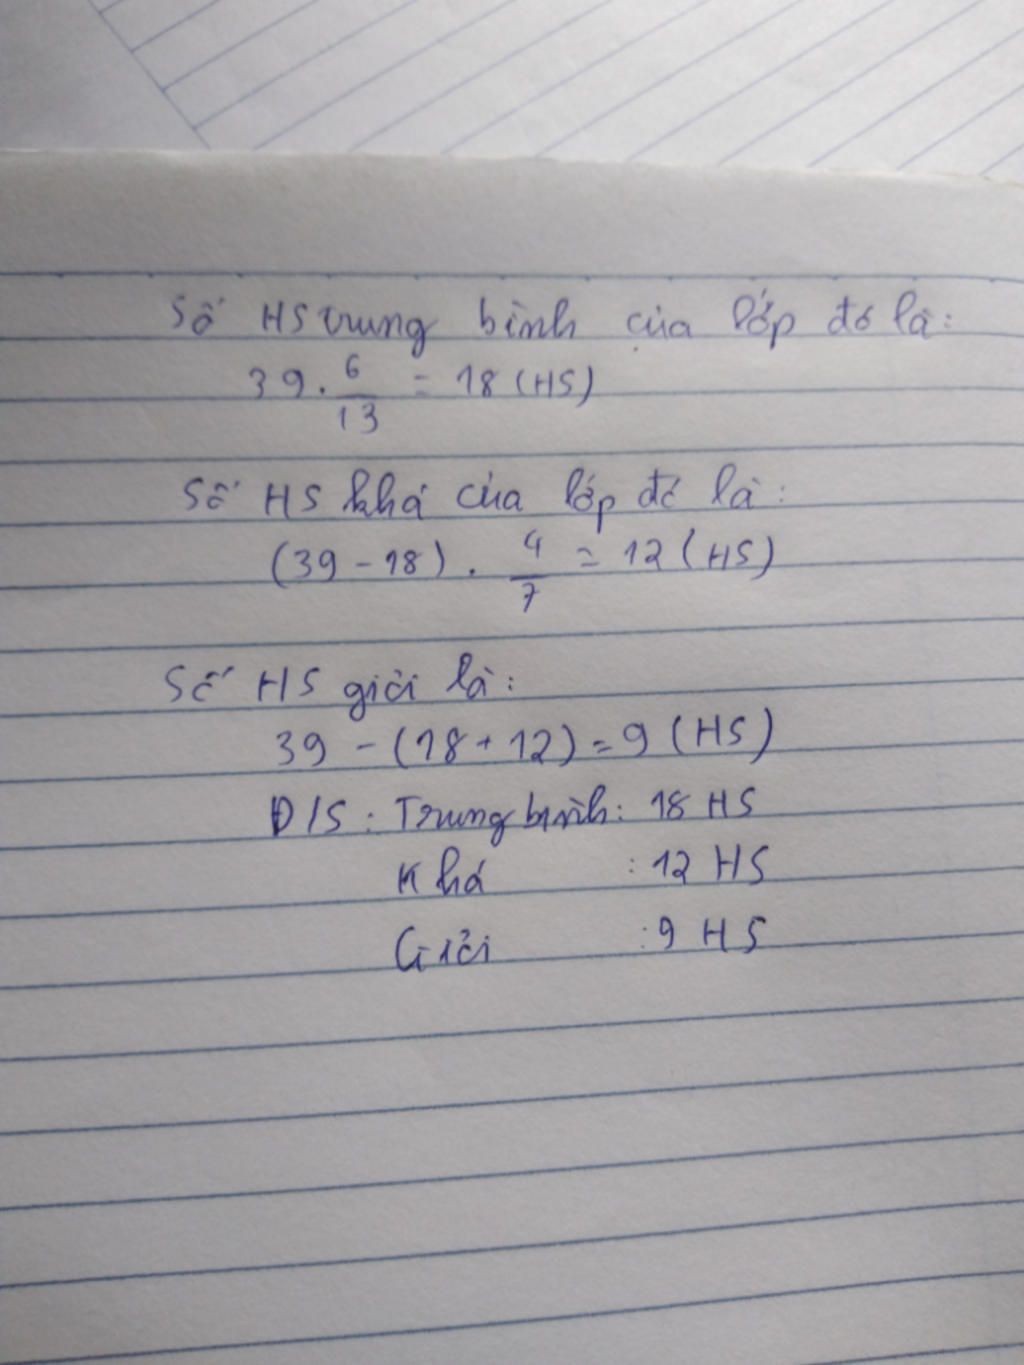 Số HS trung bình của lớp đó là:
39 . 6/13 = 18 (HS)
Số HS khá của lớp đó là:
(39 - 18) . 4/7 = 12 (HS)
Số HS giỏi là:
39 - (18 + 12) = 9 (HS)
Đ/S : Trung bình : 18 HS
Khá : 12 HS
Giỏi : 9 HS